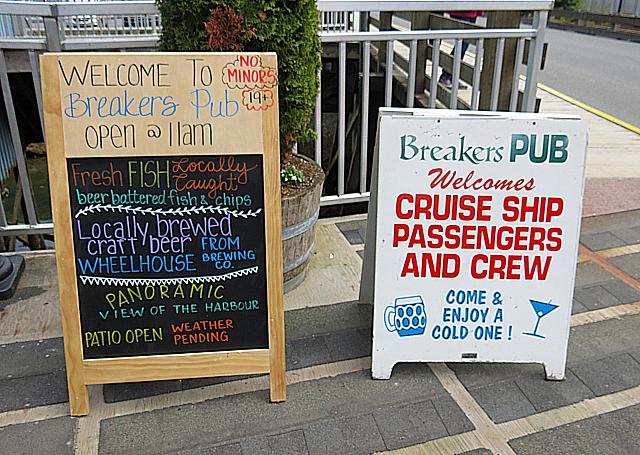 WELCOME TO
NO
MINORS
19+
Breakers Pub
OPEN @ 11am
Fresh FISH Locally
Caught
beer battered fish & chips
Locally brewed
craft beer FROM
WHEELHOUSE BREWING
CO.
PANORAMIC
VIEW OF THE HARBOUR
PATIO OPEN WEATHER
PENDING
Breakers PUB
Welcomes
CRUISE SHIP
PASSENGERS
AND CREW
COME &
ENJOY A
COLD ONE !